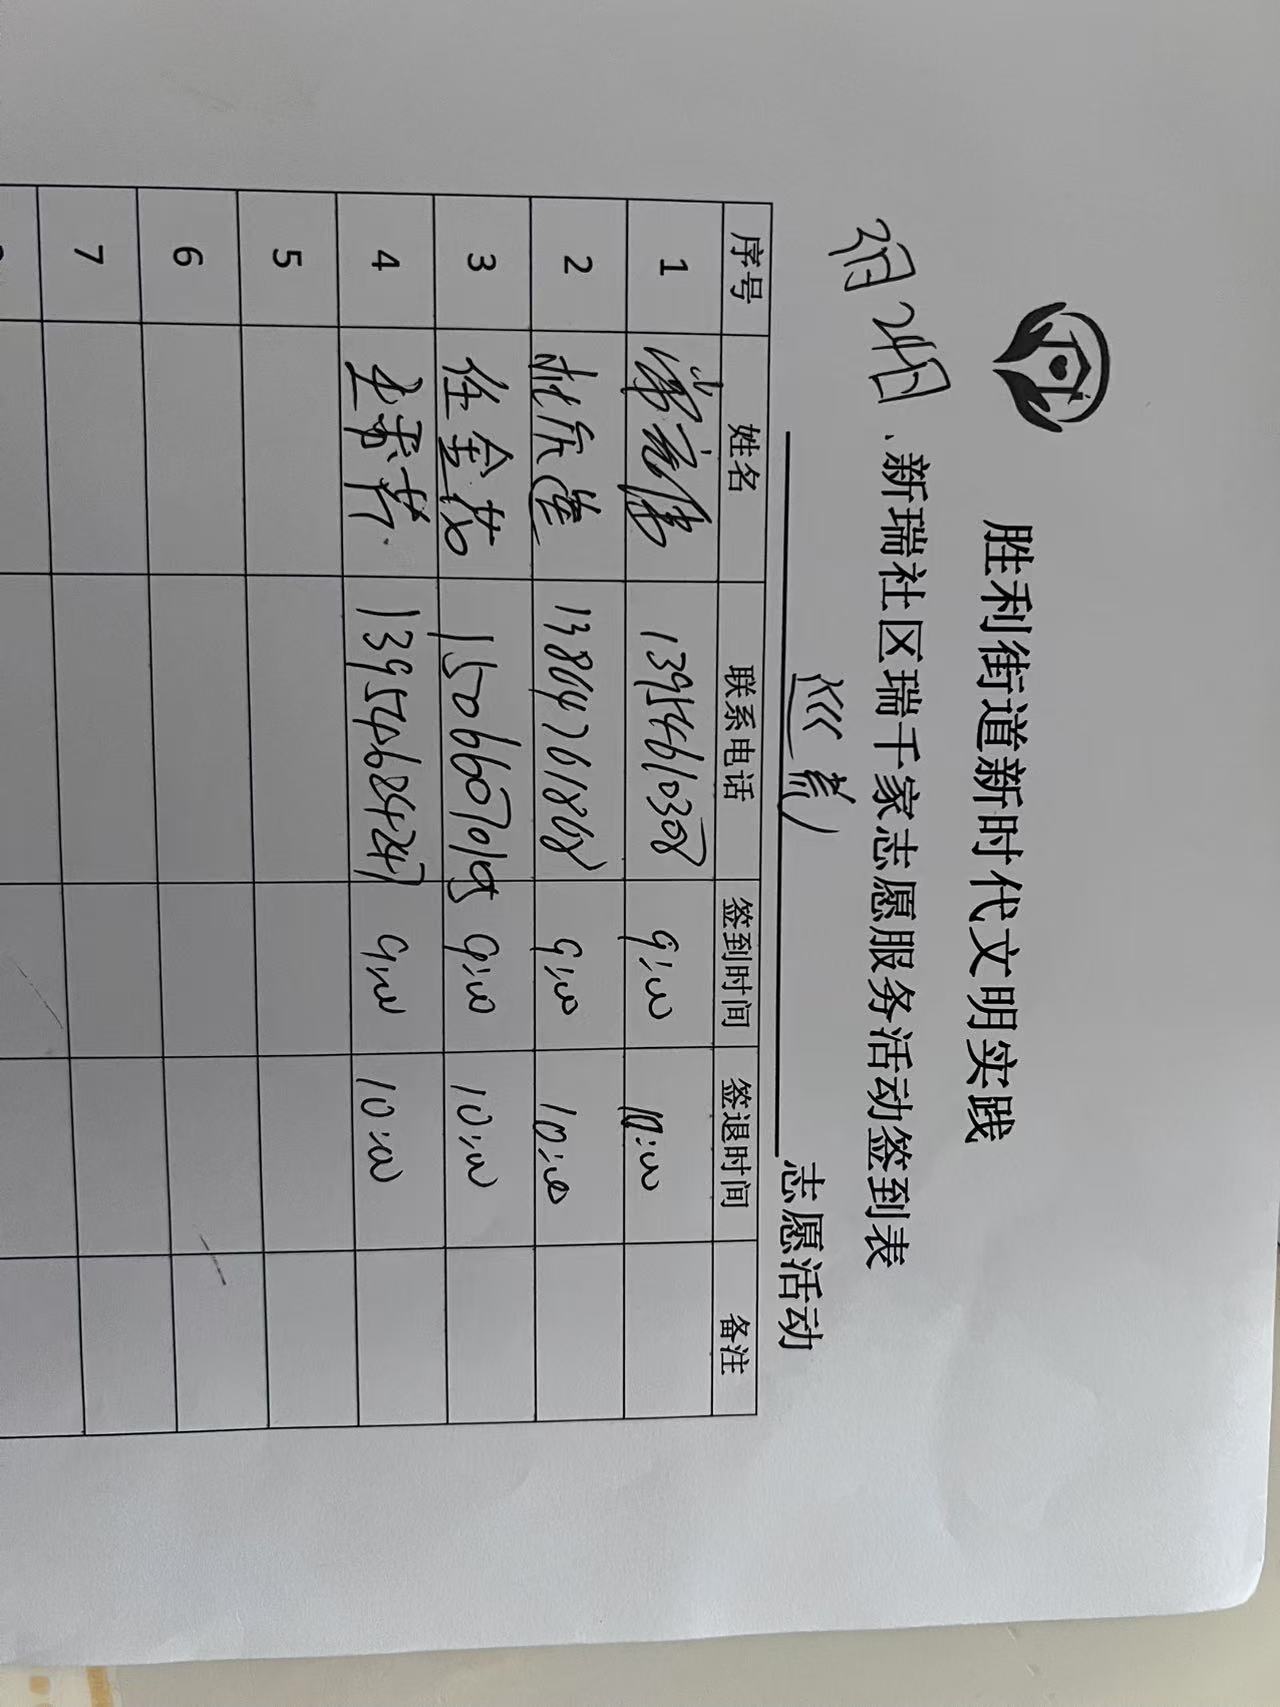 胜利街道新时代文明实践
2月24日、新瑞社区瑞千家志愿服务活动签到表
志愿活动
序号 姓名 联系电话 签到时间 签退时间 备注
1 13954610308 9:00 10:00
2 13864761868 9:00 10:00
3 任金花 9:00 10:00
4 13954684247 9:00 10:00
5
6
7